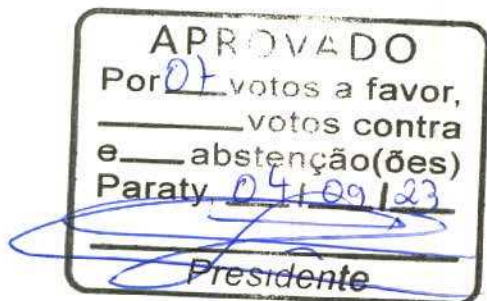 APROVADO
Por 07 votos a favor,
votos contra
e abstenção(ões)
Paraty, 04/09/23
Presidente